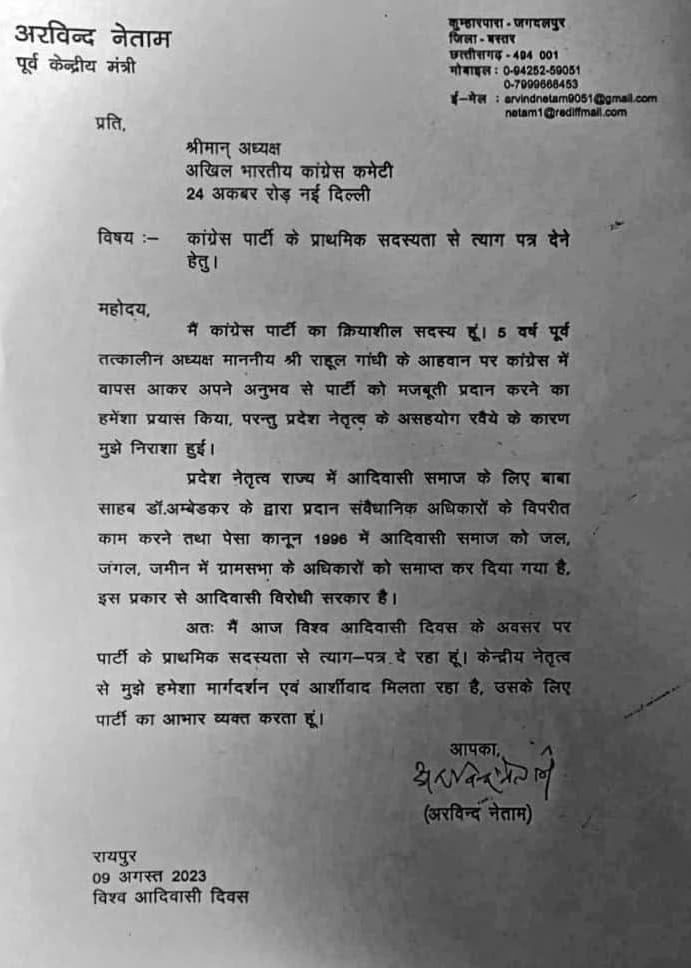 अरविन्द नेताम
पूर्व केन्द्रीय मंत्री
कुम्हारपारा - जगदलपुर
जिला - बस्तर
छत्तीसगढ़ - 494 001
मोबाइल : 0-94252-59051
0-7999668453
ई-मेल : arvindnetam9051@gmail.com
netam1@rediffmail.com
प्रति,
श्रीमान् अध्यक्ष
अखिल भारतीय कांग्रेस कमेटी
24 अकबर रोड़ नई दिल्ली
विषय :– कांग्रेस पार्टी के प्राथमिक सदस्यता से त्याग पत्र देने
हेतु।
महोदय,
मैं कांग्रेस पार्टी का क्रियाशील सदस्य हूं। 5 वर्ष पूर्व
तत्कालीन अध्यक्ष माननीय श्री राहूल गांधी के आहवान पर कांग्रेस में
वापस आकर अपने अनुभव से पार्टी को मजबूती प्रदान करने का
हमेंशा प्रयास किया, परन्तु प्रदेश नेतृत्व के असहयोग रवैये के कारण
मुझे निराशा हुई।
प्रदेश नेतृत्व राज्य में आदिवासी समाज के लिए बाबा
साहब डॉ.अम्बेडकर के द्वारा प्रदान संवैधानिक अधिकारों के विपरीत
काम करने तथा पेसा कानून 1996 में आदिवासी समाज को जल,
जंगल, जमीन में ग्रामसभा के अधिकारों को समाप्त कर दिया गया है,
इस प्रकार से आदिवासी विरोधी सरकार है।
अतः मैं आज विश्व आदिवासी दिवस के अवसर पर
पार्टी के प्राथमिक सदस्यता से त्याग–पत्र दे रहा हूं। केन्द्रीय नेतृत्व
से मुझे हमेशा मार्गदर्शन एवं आर्शीवाद मिलता रहा है, उसके लिए
पार्टी का आभार व्यक्त करता हूं।
आपका,
अरविन्द नेताम
(अरविन्द नेताम)
रायपुर
09 अगस्त 2023
विश्व आदिवासी दिवस